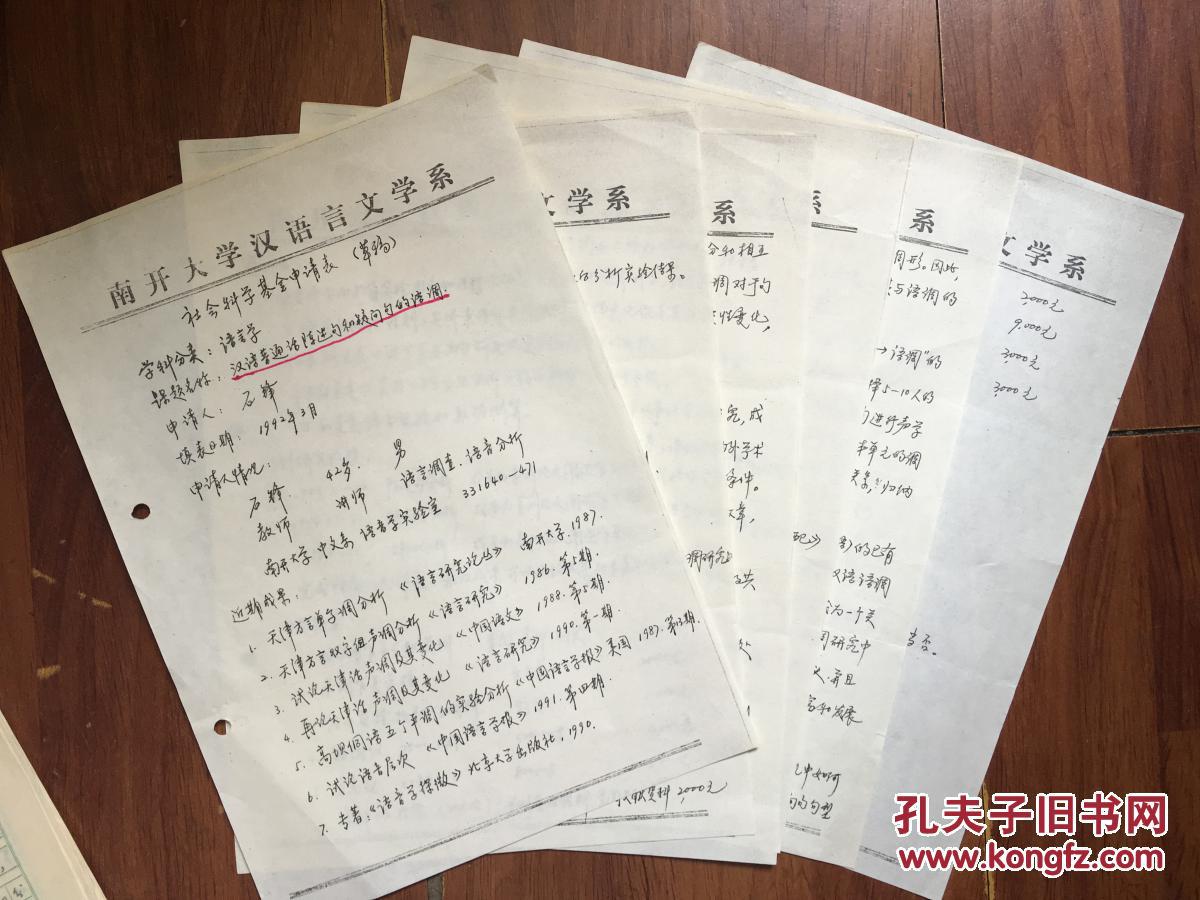 南开大学汉语言文学系
社会科学基金申请表（草稿）
学科分类：语言学
课题名称：汉语普通话陈述句和疑问句的语调.
申请人：石锋
填表日期：1992年3月
申请人情况：
石锋. 42岁. 男
教师 讲师 语言调查.语音分析
南开大学中文系 语音学实验室 331640-471
近期成果：
1. 天津方言单字调分析《语言研究论丛》南开大学.1987.
2. 天津方言双字组声调分析《语言研究》1986.第5期.
3. 试论天津话声调及其变化《中国语文》1988.第5期.
4. 再论天津话声调及其变化《语言研究》1990.第一期.
5. 高坝侗语五个平调的实验分析《中国语言学报》美国1987.第13期.
6. 试论语音层次《中国语言学报》1991.第四期.
7. 专著：《语音学探微》北京大学出版社，1990.
文学系
分析实验结果。
资料 2,000元
系
分和相互
调对于句
性变化，
究，成
学术
条件。
章，
调研究
系
配》
系
同形。因此，
与语调的
→语调"的
择5-10人的
进行声学
本单元的调
关系，归纳
的已有
汉语语调
为一个关
同研究中
义.并且
和发展
中如何
句的句型
文学系
2000元
9.000元
3000元
3,000元
孔夫子旧书网
www.kongfz.com